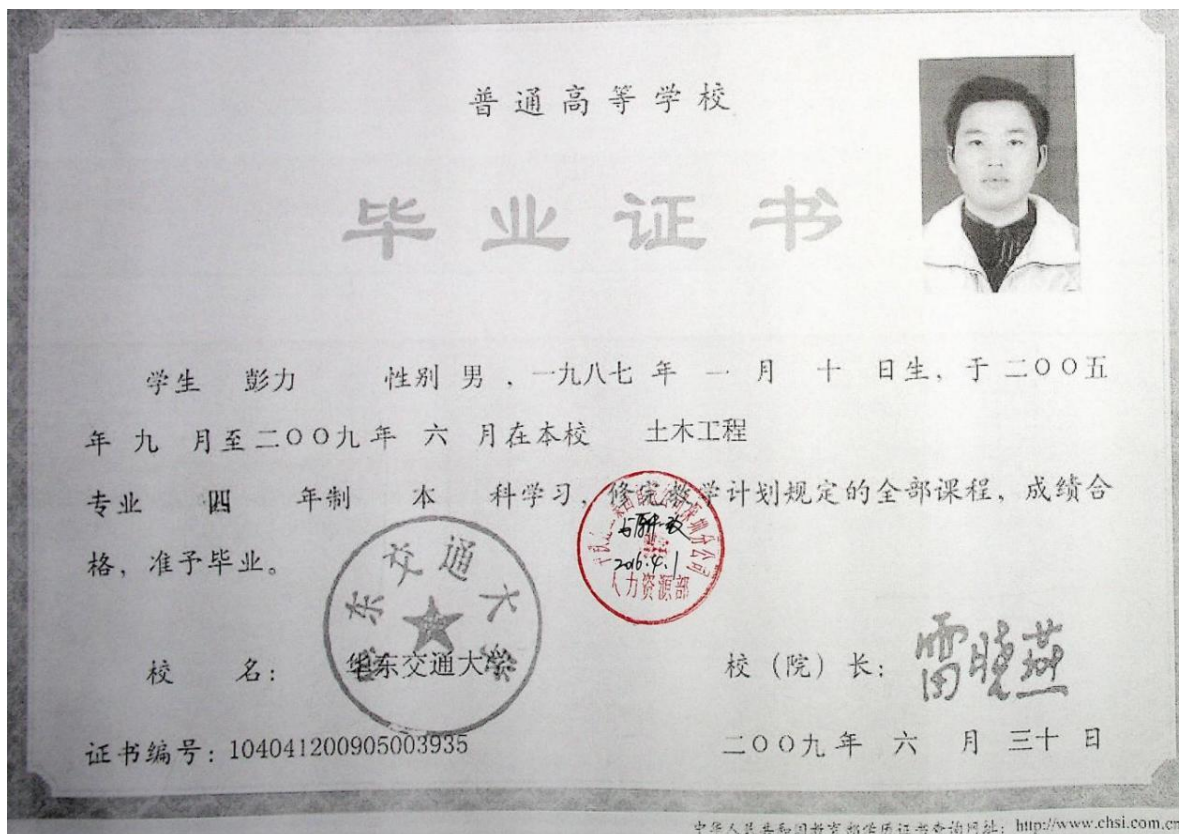 普通高等学校
毕业证书
学生 彭力 性别 男 ，一九八七 年 一 月 十 日生，于 二〇〇五
年 九 月至 二〇〇九 年 六 月在本校 土木工程
专业 四 年制 本 科学习，修完教学计划规定的全部课程，成绩合
格，准予毕业。
圳分公司
2016.4.1
人力资源部
东交通大学
校 名：华东交通大学
校（院）长：雷晓燕
证书编号：104041200905003935
二〇〇九 年 六 月 三十 日
中华人民共和国教育部学历证书查询网址：http://www.chsi.com.cn